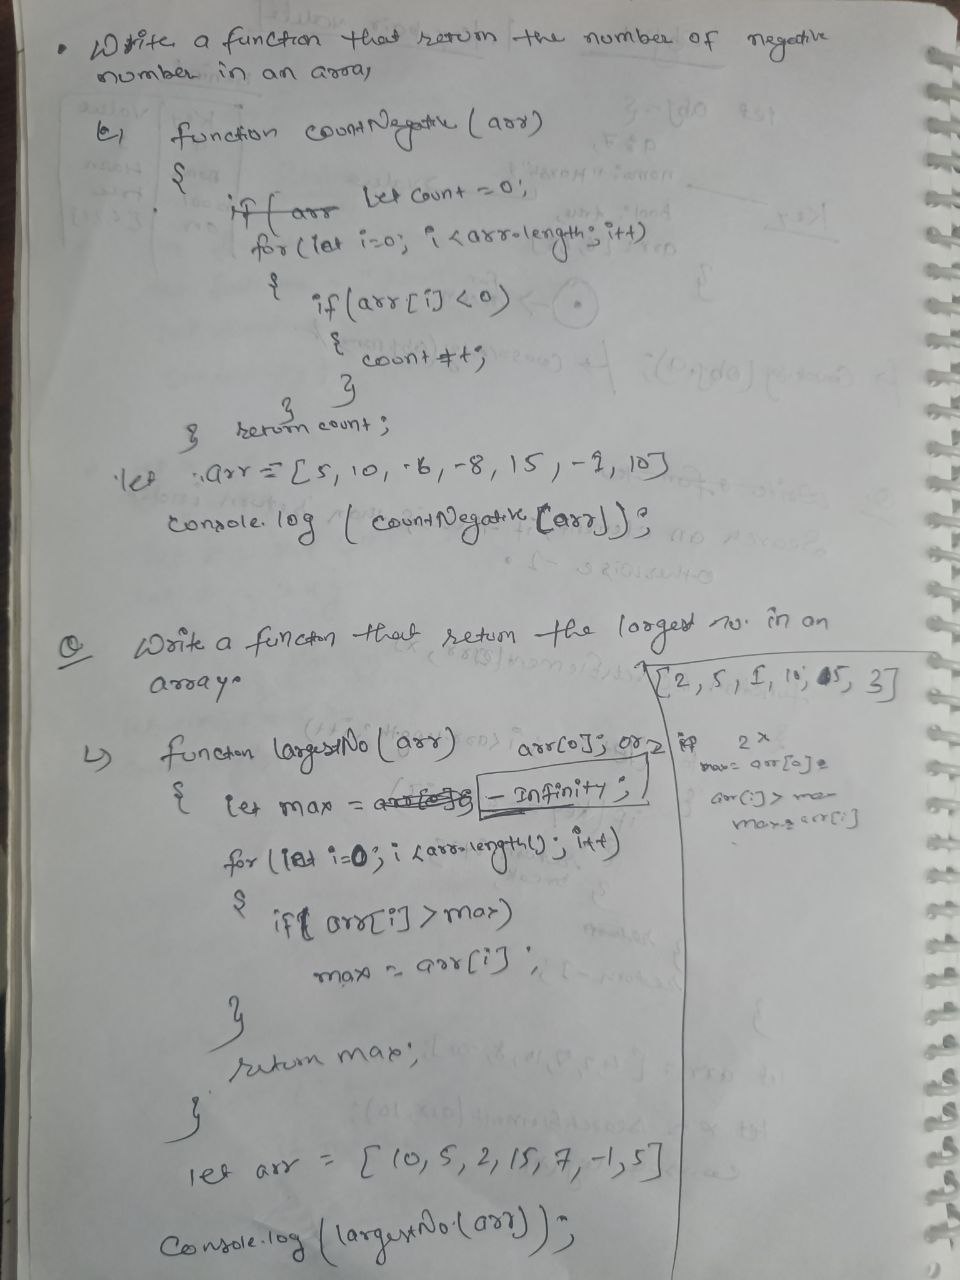 • Write a function that return the number of negative
number in an array
function countNegative (arr)
{
if( arr let count = 0;
for (let i=0; i < arr.length; i++)
{
if (arr [i] < 0)
{
count ++;
}
}
return count;
}
let arr = [5, 10, -6, -8, 15, -1, 10]
console.log ( countNegative [arr]);
Q Write a function that return the largest no. in an
array.
[2, 5, 1, 10, 15, 3]
↳ function largestNo (arr) arr[0]; or
{ let max = arr[0]; - Infinity;
for (let i=0; i < arr.length(); i++)
{
if( arr[i] > max)
max = arr[i];
}
return max;
}
let arr = [ 10, 5, 2, 15, 7, -1, 5]
Console.log (largestNo.(arr));
2 if 2 x
max = arr[0]
arr[i] > max
max = arr[i]